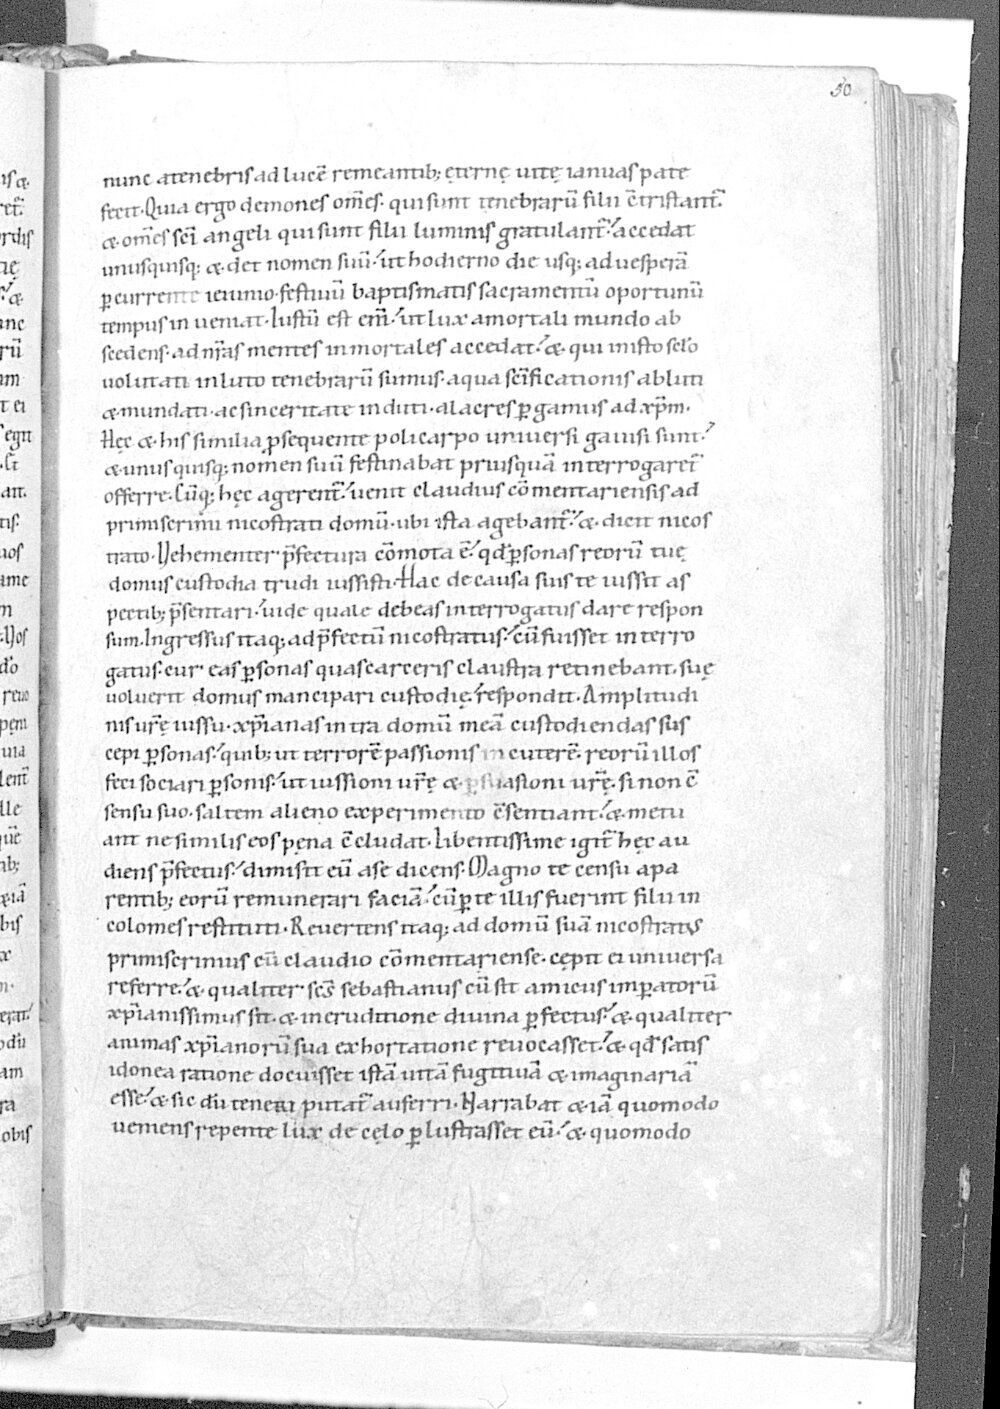 50
nunc atenebris ad lucē remeantib; ęternę uitę ianuas pate
fecit. Quia ergo demones om̄es. qui sunt tenebrarū filii c̄tristant̄.
& om̄es sc̄i angeli qui sunt filii luminis gratulant̄. accedat
unusquisq; & det nomen suū. ut hodierno die usq; ad uesperā
ꝑcurrente ieiunio. festiuū baptismatis sacramentū oportunū
tempus inueniat. Iustū est eni̅. ut lux amortali mundo ab
scedens. ad nr̄as mentes inmortales accedat. & qui inisto sc̄lo
uolutati inluto tenebrarū sumus. aqua sc̄ificationis abluti
& mundati. ac sinceritate induti. alacres ꝑgamus ad xp̄m.
Hęc & his similia ꝓsequente policarpo uniuersi gauisi sunt.
& unusquisq; nomen suū festinabat priusquā interrogaret̄
offerre. Cūq; hęc agerent̄. uenit claudius cōmentariensis ad
primiscrinii nicostrati domū. ubi ista agebant̄. & dicit nicos
trato. Vehementer p̄fectura cōmota ē. qd̄ ꝑsonas reorū tuę
domus custodia trudi iussisti. Hac de causa suis te iussit as
pectib; p̄sentari. uide quale debeas interrogatus dare respon
sum. Ingressus itaq; ad p̄fectū nicostratus. cū fuisset interro
gatus. cur eas ꝑsonas quas carceris claustra retinebant. suę
uoluerit domus mancipari custodię. respondit. Amplitudi
nis ur̄ę iussu. xp̄ianas intra domū meā custodiendas sus
cepi ꝑsonas. quib; ut terrorē passionis incuterē. reorū illos
feci sociari ꝑsonis. ut iussioni ur̄ę & ꝑsuasioni ur̄ę. si non c̄
sensu suo. saltem alieno experimento c̄sentiant. & metu
ant ne similis eos pęna c̄cludat. Libentissime igit̄ hęc au
diens p̄fectus. dimisit eū ase dicens. Magno te censu apa
rentib; eorū remunerari faciā. cū ꝑ te illis fuerint filii in
colomes restituti. Reuertens itaq; ad domū suā nicostratus
primiscrinius cū claudio cōmentariense. cępit ei uniuersa
referre. & qualiter sc̄s sebastianus cū sit amicus imꝑatorū
xp̄ianissimus sit. & in eruditione diuina ꝑfectus. & qualiter
animas xp̄ianorū sua exhortatione reuocasset. & qd̄ satis
idonea ratione docuisset istā uitā fugitiuā & imaginariā
esse. & sic dū teneri putat̄ auferri. Narrabat & iā quomodo
ueniens repente lux de cęlo ꝑlustrasset eū. & quomodo